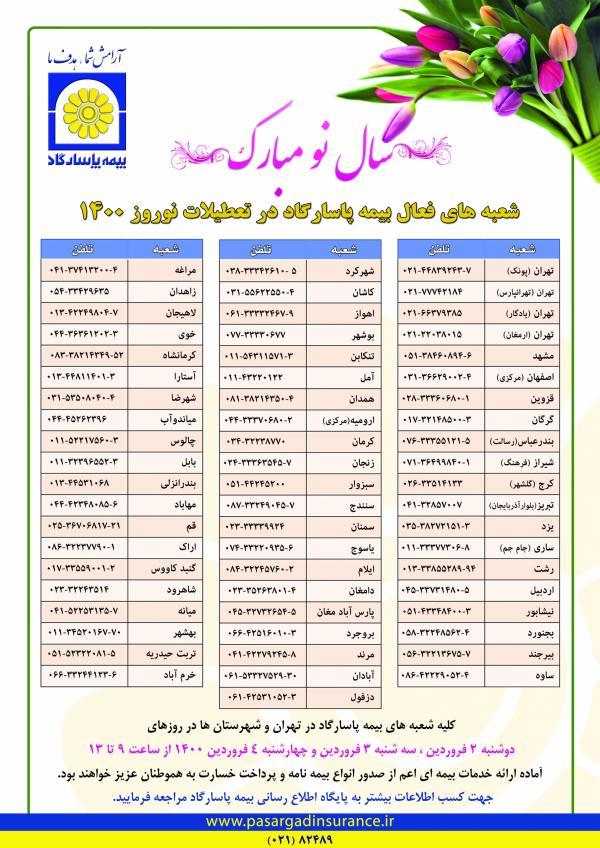 آرامش شما، هدف ما
بیمه پاسارگاد
سال نو مبارک
شعبه های فعال بیمه پاسارگاد در تعطیلات نوروز ۱۴۰۰
شعبه تلفن
تهران (پونک) ۰۲۱-۴۴۸۳۹۲۴۳-۷
تهران (تهرانپارس) ۰۲۱-۷۷۷۴۲۱۸۴
تهران (یادگار) ۰۲۱-۶۶۳۷۹۳۸۵
تهران (ارمغان) ۰۲۱-۲۲۰۳۸۰۱۵
مشهد ۰۵۱-۳۸۴۶۰۸۹۴-۶
اصفهان (مرکزی) ۰۳۱-۳۶۶۲۹۰۰۲-۴
قزوین ۰۲۸-۳۳۳۶۰۶۸۰-۱
گرگان ۰۱۷-۳۲۱۴۸۵۰۰-۳
بندرعباس(رسالت) ۰۷۶-۳۳۳۵۵۱۲۱-۵
شیراز (فرهنگ) ۰۷۱-۳۶۴۹۹۸۴۰-۱
کرج (گلشهر) ۰۲۶-۳۳۵۱۴۱۳۳
تبریز(بلوارآذربایجان) ۰۴۱-۳۲۸۵۷۰۰۷
یزد ۰۳۵-۳۸۲۷۲۱۵۱-۳
ساری (جام جم) ۰۱۱-۳۳۳۷۷۳۰۶-۸
رشت ۰۱۳-۳۳۸۵۵۲۸۹-۹۴
اردبیل ۰۴۵-۳۳۷۳۱۴۸۰-۵
نیشابور ۰۵۱-۴۳۳۴۸۴۰۰-۳
بجنورد ۰۵۸-۳۲۲۴۸۵۶۲-۴
بیرجند ۰۵۶-۳۲۲۱۳۶۷۵-۷
ساوه ۰۸۶-۴۲۲۲۹۰۵۲-۴
شعبه تلفن
شهرکرد ۰۳۸-۳۳۳۴۲۶۱۰-۵
کاشان ۰۳۱-۵۵۶۲۲۵۵۰-۴
اهواز ۰۶۱-۳۳۳۳۲۴۶۷-۹
بوشهر ۰۷۷-۳۳۳۳۰۶۷۷
تنکابن ۰۱۱-۵۴۳۱۱۵۷۱-۳
آمل ۰۱۱-۴۳۲۲۰۱۲۲
همدان ۰۸۱-۳۸۲۱۴۳۵۰-۴
ارومیه(مرکزی) ۰۴۴-۳۳۳۷۰۶۸۰-۲
کرمان ۰۳۴-۳۲۲۳۸۷۷۰
زنجان ۰۲۴-۳۳۳۶۳۵۴۵-۷
سبزوار ۰۵۱-۴۴۲۴۵۲۰۰
سنندج ۰۸۷-۳۳۲۴۹۰۴۵-۷
سمنان ۰۲۳-۳۳۳۳۹۹۲۴
یاسوج ۰۷۴-۳۳۲۲۰۹۳۵-۶
ایلام ۰۸۴-۳۲۲۴۵۷۶۰-۲
دامغان ۰۲۳-۳۵۲۶۳۸۰۱-۴
پارس آباد مغان ۰۴۵-۳۲۷۳۲۶۵۴-۵
بروجرد ۰۶۶-۴۲۵۱۶۰۱۰-۳
مرند ۰۴۱-۴۲۲۷۹۲۴۵-۸
آبادان ۰۶۱-۵۳۳۲۷۵۲۹-۳۰
دزفول ۰۶۱-۴۲۵۳۱۰۵۲-۳
شعبه تلفن
مراغه ۰۴۱-۳۷۴۱۳۲۰۰-۴
زاهدان ۰۵۴-۳۳۴۲۹۶۳۵
لاهیجان ۰۱۳-۴۲۲۴۹۸۰۴-۷
خوی ۰۴۴-۳۶۳۶۱۲۰۲-۳
کرمانشاه ۰۸۳-۳۸۲۱۴۳۴۹-۵۲
آستارا ۰۱۳-۴۴۸۱۱۴۰۱-۳
شهرضا ۰۳۱-۵۳۵۰۸۰۴۰-۴
میاندوآب ۰۴۴-۴۵۲۶۲۳۹۶
چالوس ۰۱۱-۵۲۲۱۷۵۶۰-۳
بابل ۰۱۱-۳۲۳۹۶۵۵۲-۳
بندرانزلی ۰۱۳-۴۴۵۳۱۰۶۸
مهاباد ۰۴۴-۴۲۳۴۸۰۸۵-۶
قم ۰۲۵-۳۶۷۰۶۸۱۷-۲۱
اراک ۰۸۶-۳۲۲۳۷۷۹۰-۱
گنبد کاووس ۰۱۷-۳۳۵۵۹۰۰۱-۲
شاهرود ۰۲۳-۳۲۲۴۳۵۱۴
میانه ۰۴۱-۵۲۲۵۳۱۳۵-۷
بهشهر ۰۱۱-۳۴۵۲۰۱۶۷-۷۰
تربت حیدریه ۰۵۱-۵۲۳۲۲۰۸۱-۵
خرم آباد ۰۶۶-۳۳۲۴۴۱۲۳-۶
کلیه شعبه های بیمه پاسارگاد در تهران و شهرستان ها در روزهای
دوشنبه ۲ فروردین ، سه شنبه ۳ فروردین و چهارشنبه ۴ فروردین ۱۴۰۰ از ساعت ۹ تا ۱۳
آماده ارائه خدمات بیمه ای اعم از صدور انواع بیمه نامه و پرداخت خسارت به هموطنان عزیز خواهند بود.
جهت کسب اطلاعات بیشتر به پایگاه اطلاع رسانی بیمه پاسارگاد مراجعه فرمایید.
www.pasargadinsurance.ir
(۰۲۱) ۸۲۴۸۹